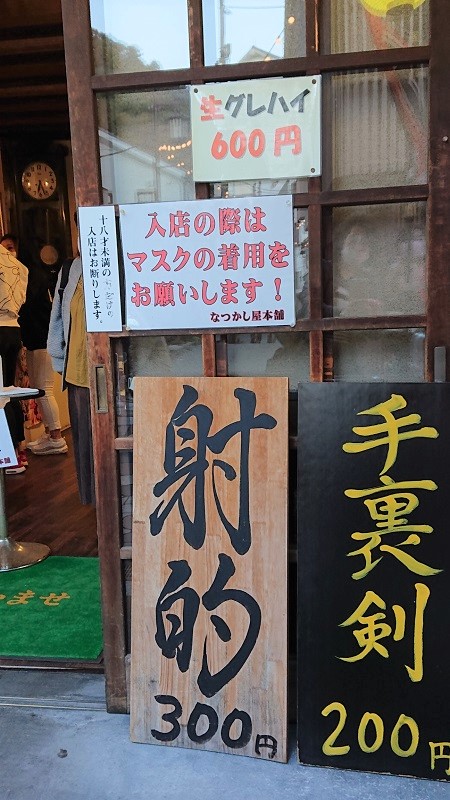 生グレハイ
600円
入店の際は
マスクの着用を
お願いします!
なつかし屋本舗
十八才未満の
入店はお断りします。
射的
300円
手裏剣
200円
ませ